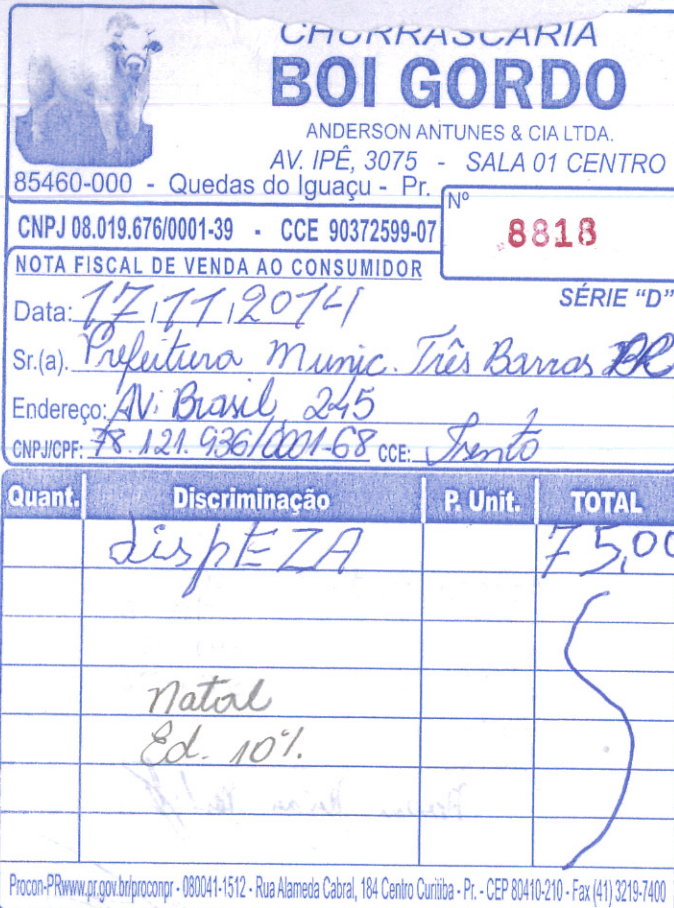 CHURRASCARIA
BOI GORDO
ANDERSON ANTUNES & CIA LTDA.
AV. IPÊ, 3075 - SALA 01 CENTRO
85460-000 - Quedas do Iguaçu - Pr.
CNPJ 08.019.676/0001-39 - CCE 90372599-07
Nº 8818
NOTA FISCAL DE VENDA AO CONSUMIDOR
SÉRIE "D"
Data: 17/11/2014
Sr.(a). Prefeitura Munic. Três Barras PR
Endereço: AV. Brasil, 245
CNPJ/CPF: 78.121.936/0001-68 CCE: Isento
Quant. Discriminação P. Unit. TOTAL
dispEZA 75,00
Natal
Ed. 10%
Procon-PRwww.pr.gov.br/proconpr - 080041-1512 - Rua Alameda Cabral, 184 Centro Curitiba - Pr. - CEP 80410-210 - Fax (41) 3219-7400